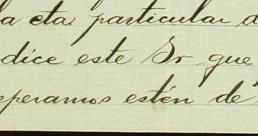 la cta particular d
dice este Sr que
speramos estén de